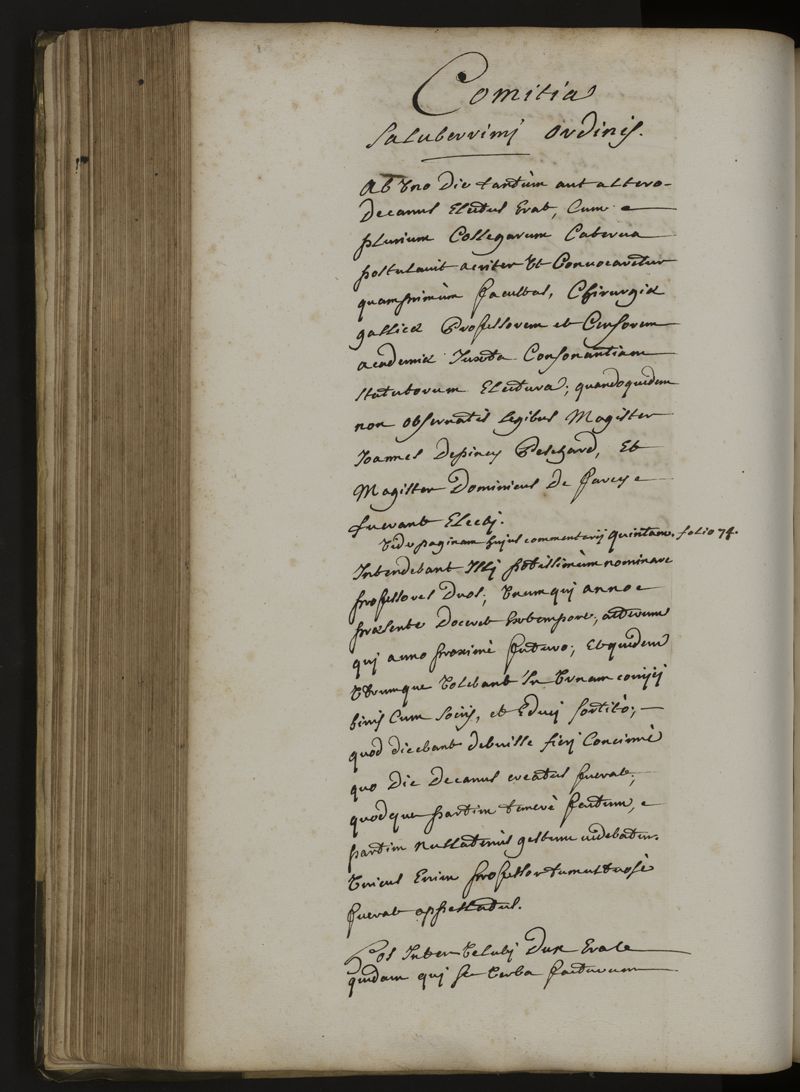 Comitia
saluberrimj ordinis.
Ab Vno die tantùm aut altero
decanus Electus Erat, Cum e
plurium Collegarum Caterua
postulauit acriter Vt Conuocaretur
quamprimùm facultas, Chirurgiæ
gallicæ Professorem et Censorem
academiæ Iuxta Consonantiam
statutorum Electura; quandoquidem
non obseruatis legibus Magister
Ioannes Depinay Et
Magister Dominicus De farcy
fuerant Electj.
Vide paginam hujus commentarij quintam. folio 74.
Intendebant Illj potissimùm nominare
professores duos; Vnum qui anno
præsente doceret Extempore, alterum
qui anno proximè futuro; Et quidem
Vtrumque Volebant In Vrnam conijcj
binis Cum socijs, et Educj sortitò;
quod dicebant debuisse fierj Concinnè
quo die decanus creatus fuerat;
quodque partim temerè factum,
partim nullatenùs gestum uidebatur.
Vnicus Enim professor tumultuosè
fuerat appellatus.
Hos Inter Velutj dux Erat
quidam qui se Verba facturum